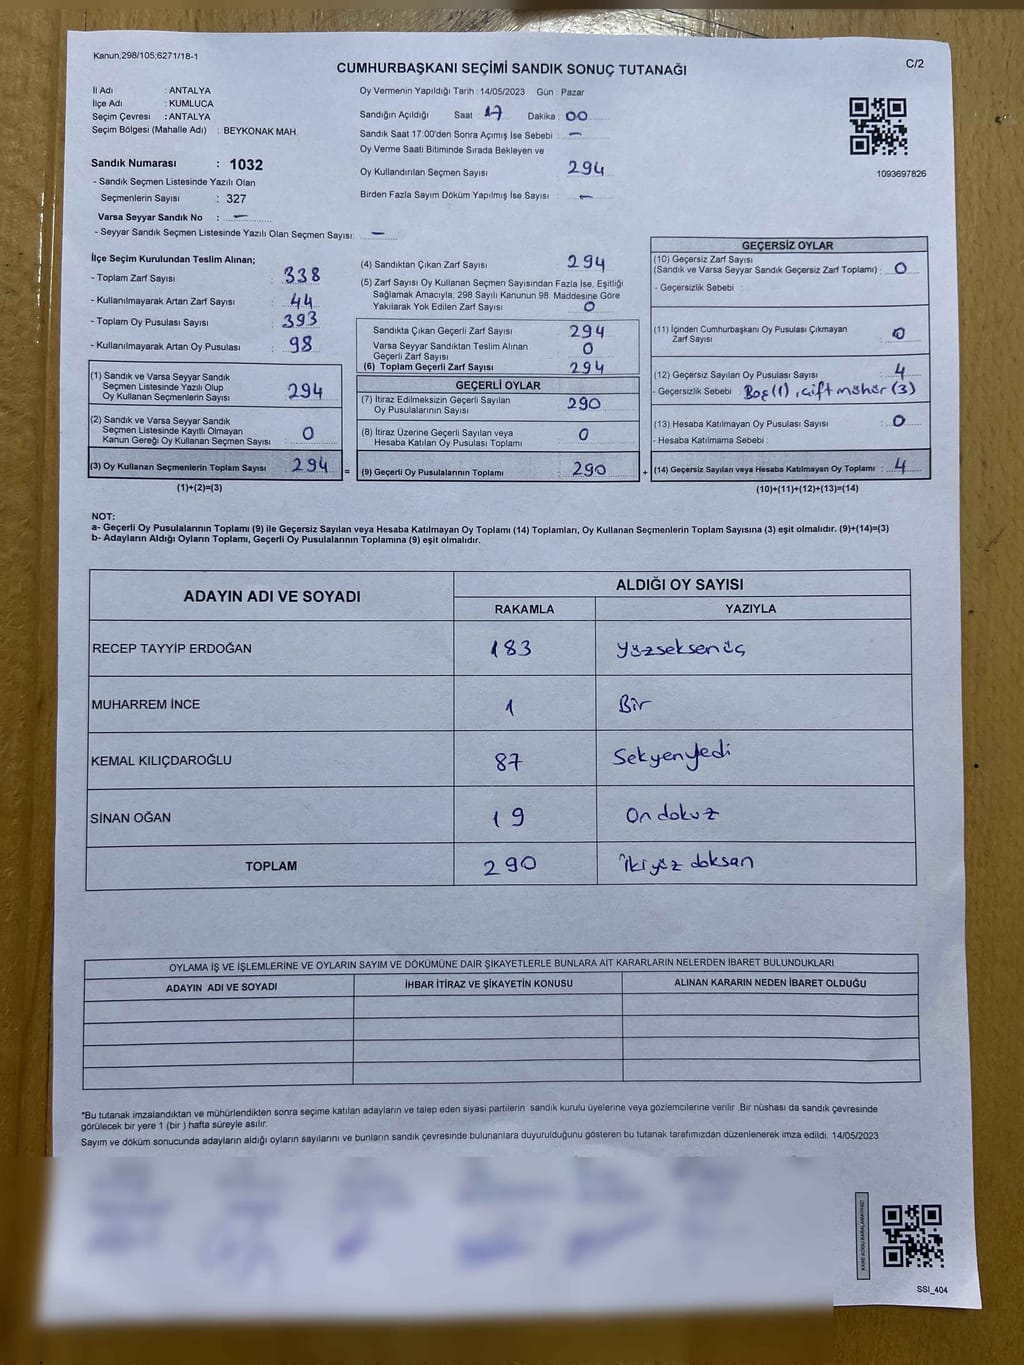 Kanun,298/105,6271/18-1
C/2
CUMHURBAŞKANI SEÇİMİ SANDIK SONUÇ TUTANAĞI
İl Adı : ANTALYA
İlçe Adı : KUMLUCA
Seçim Çevresi : ANTALYA
Seçim Bölgesi (Mahalle Adı) : BEYKONAK MAH.
Sandık Numarası : 1032
- Sandık Seçmen Listesinde Yazılı Olan
Seçmenlerin Sayısı : 327
Varsa Seyyar Sandık No : –
- Seyyar Sandık Seçmen Listesinde Yazılı Olan Seçmen Sayısı: –
Oy Vermenin Yapıldığı Tarih : 14/05/2023 Gün : Pazar
Sandığın Açıldığı Saat 17 Dakika 00
Sandık Saat 17:00'den Sonra Açımış İse Sebebi : –
Oy Verme Saati Bitiminde Sırada Bekleyen ve
Oy Kullandırılan Seçmen Sayısı : 294
Birden Fazla Sayım Döküm Yapılmış İse Sayısı : –
1093697826
İlçe Seçim Kurulundan Teslim Alınan;
- Toplam Zarf Sayısı : 338
- Kullanılmayarak Artan Zarf Sayısı : 44
- Toplam Oy Pusulası Sayısı : 393
- Kullanılmayarak Artan Oy Pusulası : 98
(1) Sandık ve Varsa Seyyar Sandık
Seçmen Listesinde Yazılı Olup
Oy Kullanan Seçmenlerin Sayısı : 294
(2) Sandık ve Varsa Seyyar Sandık
Seçmen Listesinde Kayıtlı Olmayan
Kanun Gereği Oy Kullanan Seçmen Sayısı : 0
(3) Oy Kullanan Seçmenlerin Toplam Sayısı : 294 =
(1)+(2)=(3)
(4) Sandıktan Çıkan Zarf Sayısı : 294
(5) Zarf Sayısı Oy Kullanan Seçmen Sayısından Fazla İse, Eşitliği
Sağlamak Amacıyla, 298 Sayılı Kanunun 98. Maddesine Göre
Yakılarak Yok Edilen Zarf Sayısı : 0
Sandıkta Çıkan Geçerli Zarf Sayısı : 294
Varsa Seyyar Sandıktan Teslim Alınan
Geçerli Zarf Sayısı : 0
(6) Toplam Geçerli Zarf Sayısı : 294
GEÇERLİ OYLAR
(7) İtiraz Edilmeksizin Geçerli Sayılan
Oy Pusulalarının Sayısı : 290
(8) İtiraz Üzerine Geçerli Sayılan veya
Hesaba Katılan Oy Pusulası Toplamı : 0
(9) Geçerli Oy Pusulalarının Toplamı : 290 +
GEÇERSİZ OYLAR
(10) Geçersiz Zarf Sayısı
(Sandık ve Varsa Seyyar Sandık Geçersiz Zarf Toplamı) : 0
- Geçersizlik Sebebi :
(11) İçinden Cumhurbaşkanı Oy Pusulası Çıkmayan
Zarf Sayısı : 0
(12) Geçersiz Sayılan Oy Pusulası Sayısı : 4
- Geçersizlik Sebebi : Boş(1), çift mühür (3)
(13) Hesaba Katılmayan Oy Pusulası Sayısı : 0
- Hesaba Katılmama Sebebi :
(14) Geçersiz Sayılan veya Hesaba Katılmayan Oy Toplamı : 4
(10)+(11)+(12)+(13)=(14)
NOT:
a- Geçerli Oy Pusulalarının Toplamı (9) ile Geçersiz Sayılan veya Hesaba Katılmayan Oy Toplamı (14) Toplamları, Oy Kullanan Seçmenlerin Toplam Sayısına (3) eşit olmalıdır. (9)+(14)=(3)
b- Adayların Aldığı Oyların Toplamı, Geçerli Oy Pusulalarının Toplamına (9) eşit olmalıdır.
ADAYIN ADI VE SOYADI
ALDIĞI OY SAYISI
RAKAMLA YAZIYLA
RECEP TAYYİP ERDOĞAN 183 Yüzseksenüç
MUHARREM İNCE 1 Bir
KEMAL KILIÇDAROĞLU 87 Sekyenyedi
SİNAN OĞAN 19 On dokuz
TOPLAM 290 İkiyüz doksan
OYLAMA İŞ VE İŞLEMLERİNE VE OYLARIN SAYIM VE DÖKÜMÜNE DAİR ŞİKAYETLERLE BUNLARA AİT KARARLARIN NELERDEN İBARET BULUNDUKLARI
ADAYIN ADI VE SOYADI İHBAR İTİRAZ VE ŞİKAYETİN KONUSU ALINAN KARARIN NEDEN İBARET OLDUĞU
*Bu tutanak imzalandıktan ve mühürlendikten sonra seçime katılan adayların ve talep eden siyasi partilerin sandık kurulu üyelerine veya gözlemcilerine verilir. Bir nüshası da sandık çevresinde
görülecek bir yere 1 (bir ) hafta süreyle asılır.
Sayım ve döküm sonucunda adayların aldığı oyların sayılarını ve bunların sandık çevresinde bulunanlara duyurulduğunu gösteren bu tutanak tarafımızdan düzenlenerek imza edildi. 14/05/2023
SSI_404